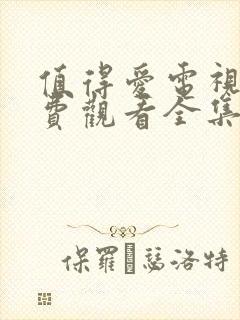 值得愛電視
費觀看全集
保羅瑟洛特